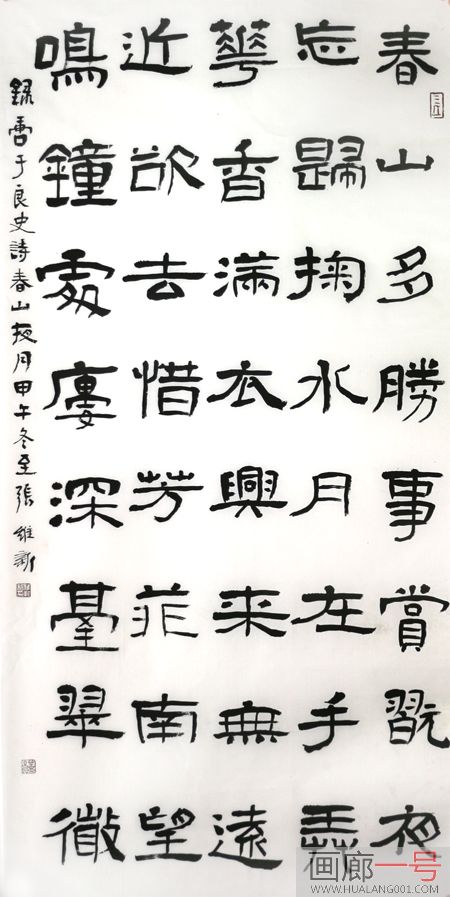 春山多勝事賞翫夜
忘歸掬水月在手弄
華香滿衣興来無遠
近欲去惜芳菲南望
鳴鐘處廔深臺翠微
録唐于良史詩春山夜月甲午冬至張維新
画廊一号
WWW.HUALANG001.COM